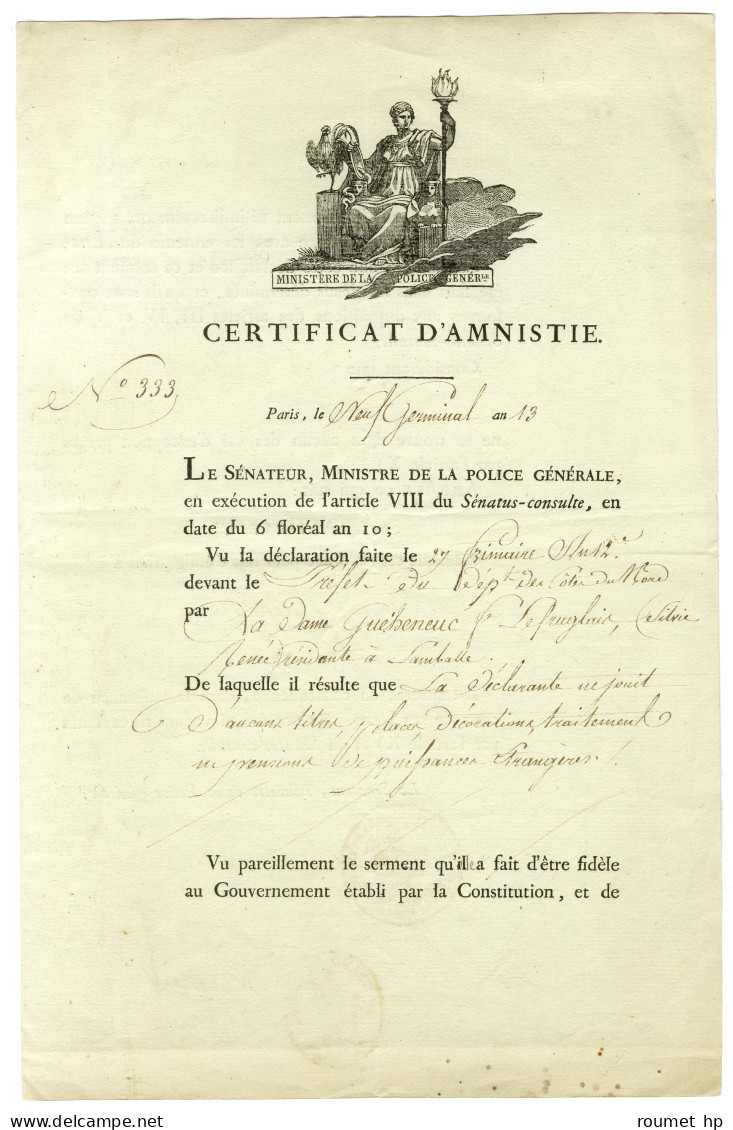 MINISTÈRE DE LA POLICE GENÉR.LE
CERTIFICAT D'AMNISTIE.
N.o 333
Paris, le Neuf Germinal an 13
LE SÉNATEUR, MINISTRE DE LA POLICE GÉNÉRALE,
en exécution de l'article VIII du Sénatus-consulte, en
date du 6 floréal an 10;
Vu la déclaration faite le 27 frimaire An 12.e
devant le Préfet du dépt. des Côtes du Nord
par La Dame Guéheneuc fe Lefruglais, Silvie
Renée, résidante à Lamballe.
De laquelle il résulte que La Déclarante ne jouit
d'aucuns titres, places, décorations, traitement
ni pensions de puissances Etrangères.
Vu pareillement le serment qu'ille a fait d'être fidèle
au Gouvernement établi par la Constitution, et de
roumet hp